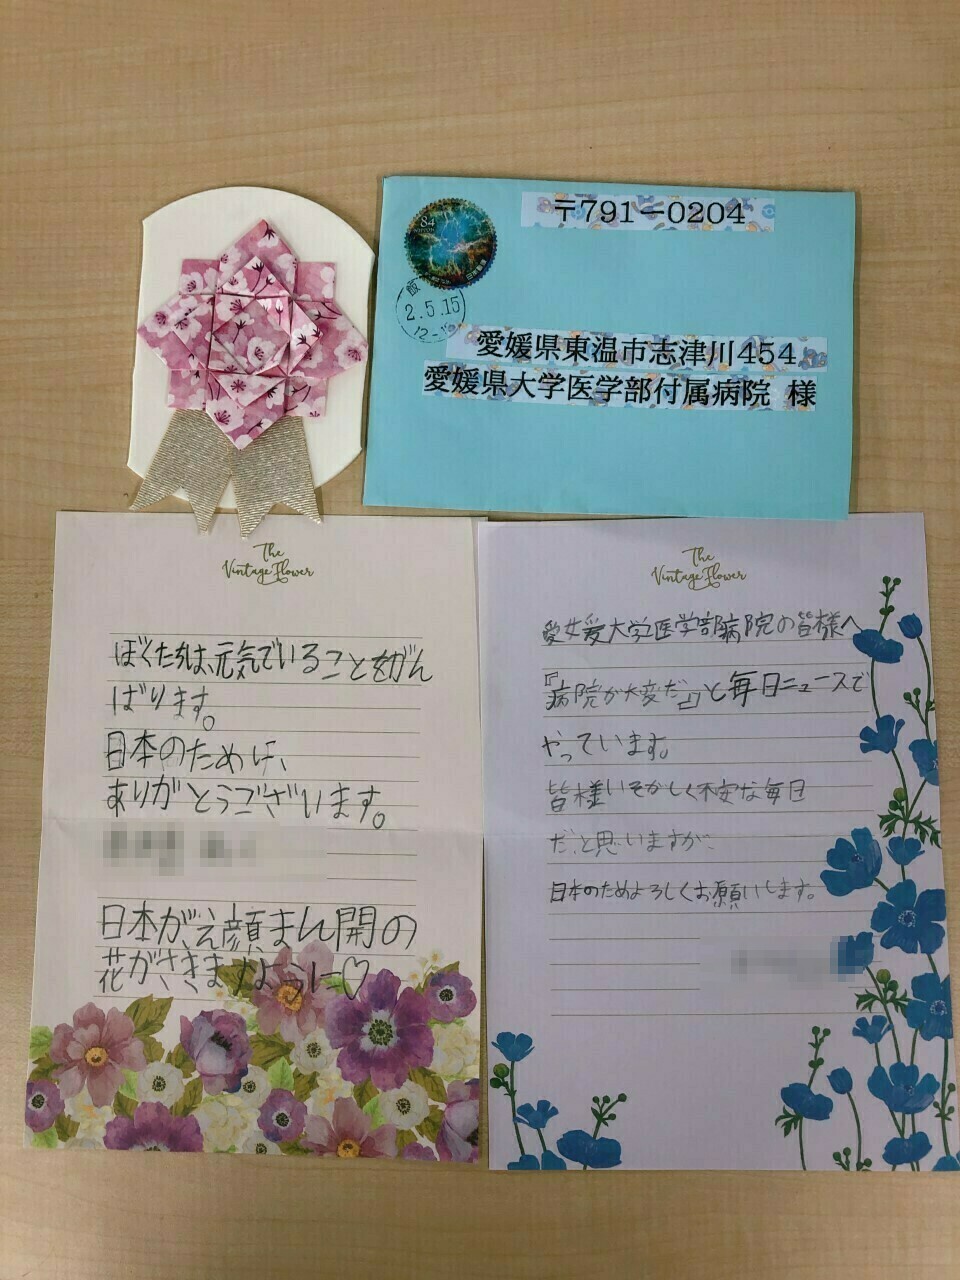 84
NIPPON
日本郵便
2.5.15
〒791-0204
愛媛県東温市志津川454
愛媛県大学医学部付属病院 様
The
Vintage Flower
ぼくたちは、元気でいることをがん
ばります。
日本のために、
ありがとうございます。
日本が、え顔まん開の
花がさきますように♡
The
Vintage Flower
愛媛大学医学部病院の皆様へ
『病院が大変だ』と毎日ニュースで
やっています。
皆様いそがしく不安な毎日
だと思いますが、
日本のためよろしくお願いします。